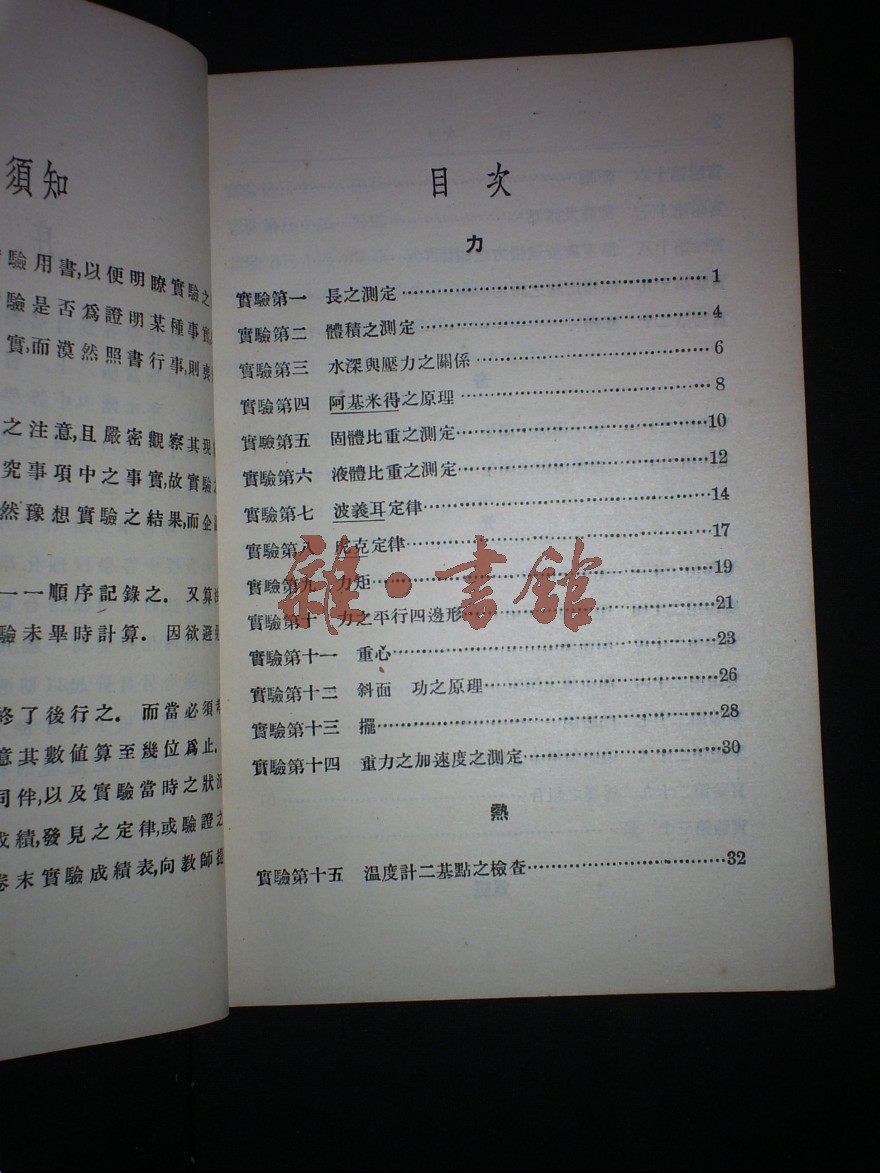 須知
驗用書,以便明瞭實驗之
驗是否爲證明某種事實
實,而漠然照書行事,則喪
之注意,且嚴密觀察其現
究事項中之事實,故實驗
然豫想實驗之結果,而企
一一順序記錄之. 又算
驗未畢時計算. 因欲避
終了後行之. 而當必須
意其數値算至幾位爲止.
同伴,以及實驗當時之狀況
成績,發見之定律,或驗證之
卷末實驗成績表,向敎師提
目次
力
實驗第一 長之測定……1
實驗第二 體積之測定……4
實驗第三 水深與壓力之關係……6
實驗第四 阿基米得之原理……8
實驗第五 固體比重之測定……10
實驗第六 液體比重之測定……12
實驗第七 波義耳定律……14
實驗第八 虎克定律……17
實驗第九 力矩……19
實驗第十 力之平行四邊形……21
實驗第十一 重心……23
實驗第十二 斜面 功之原理……26
實驗第十三 擺……28
實驗第十四 重力之加速度之測定……30
熱
實驗第十五 温度計二基點之檢查……32
雜·書館